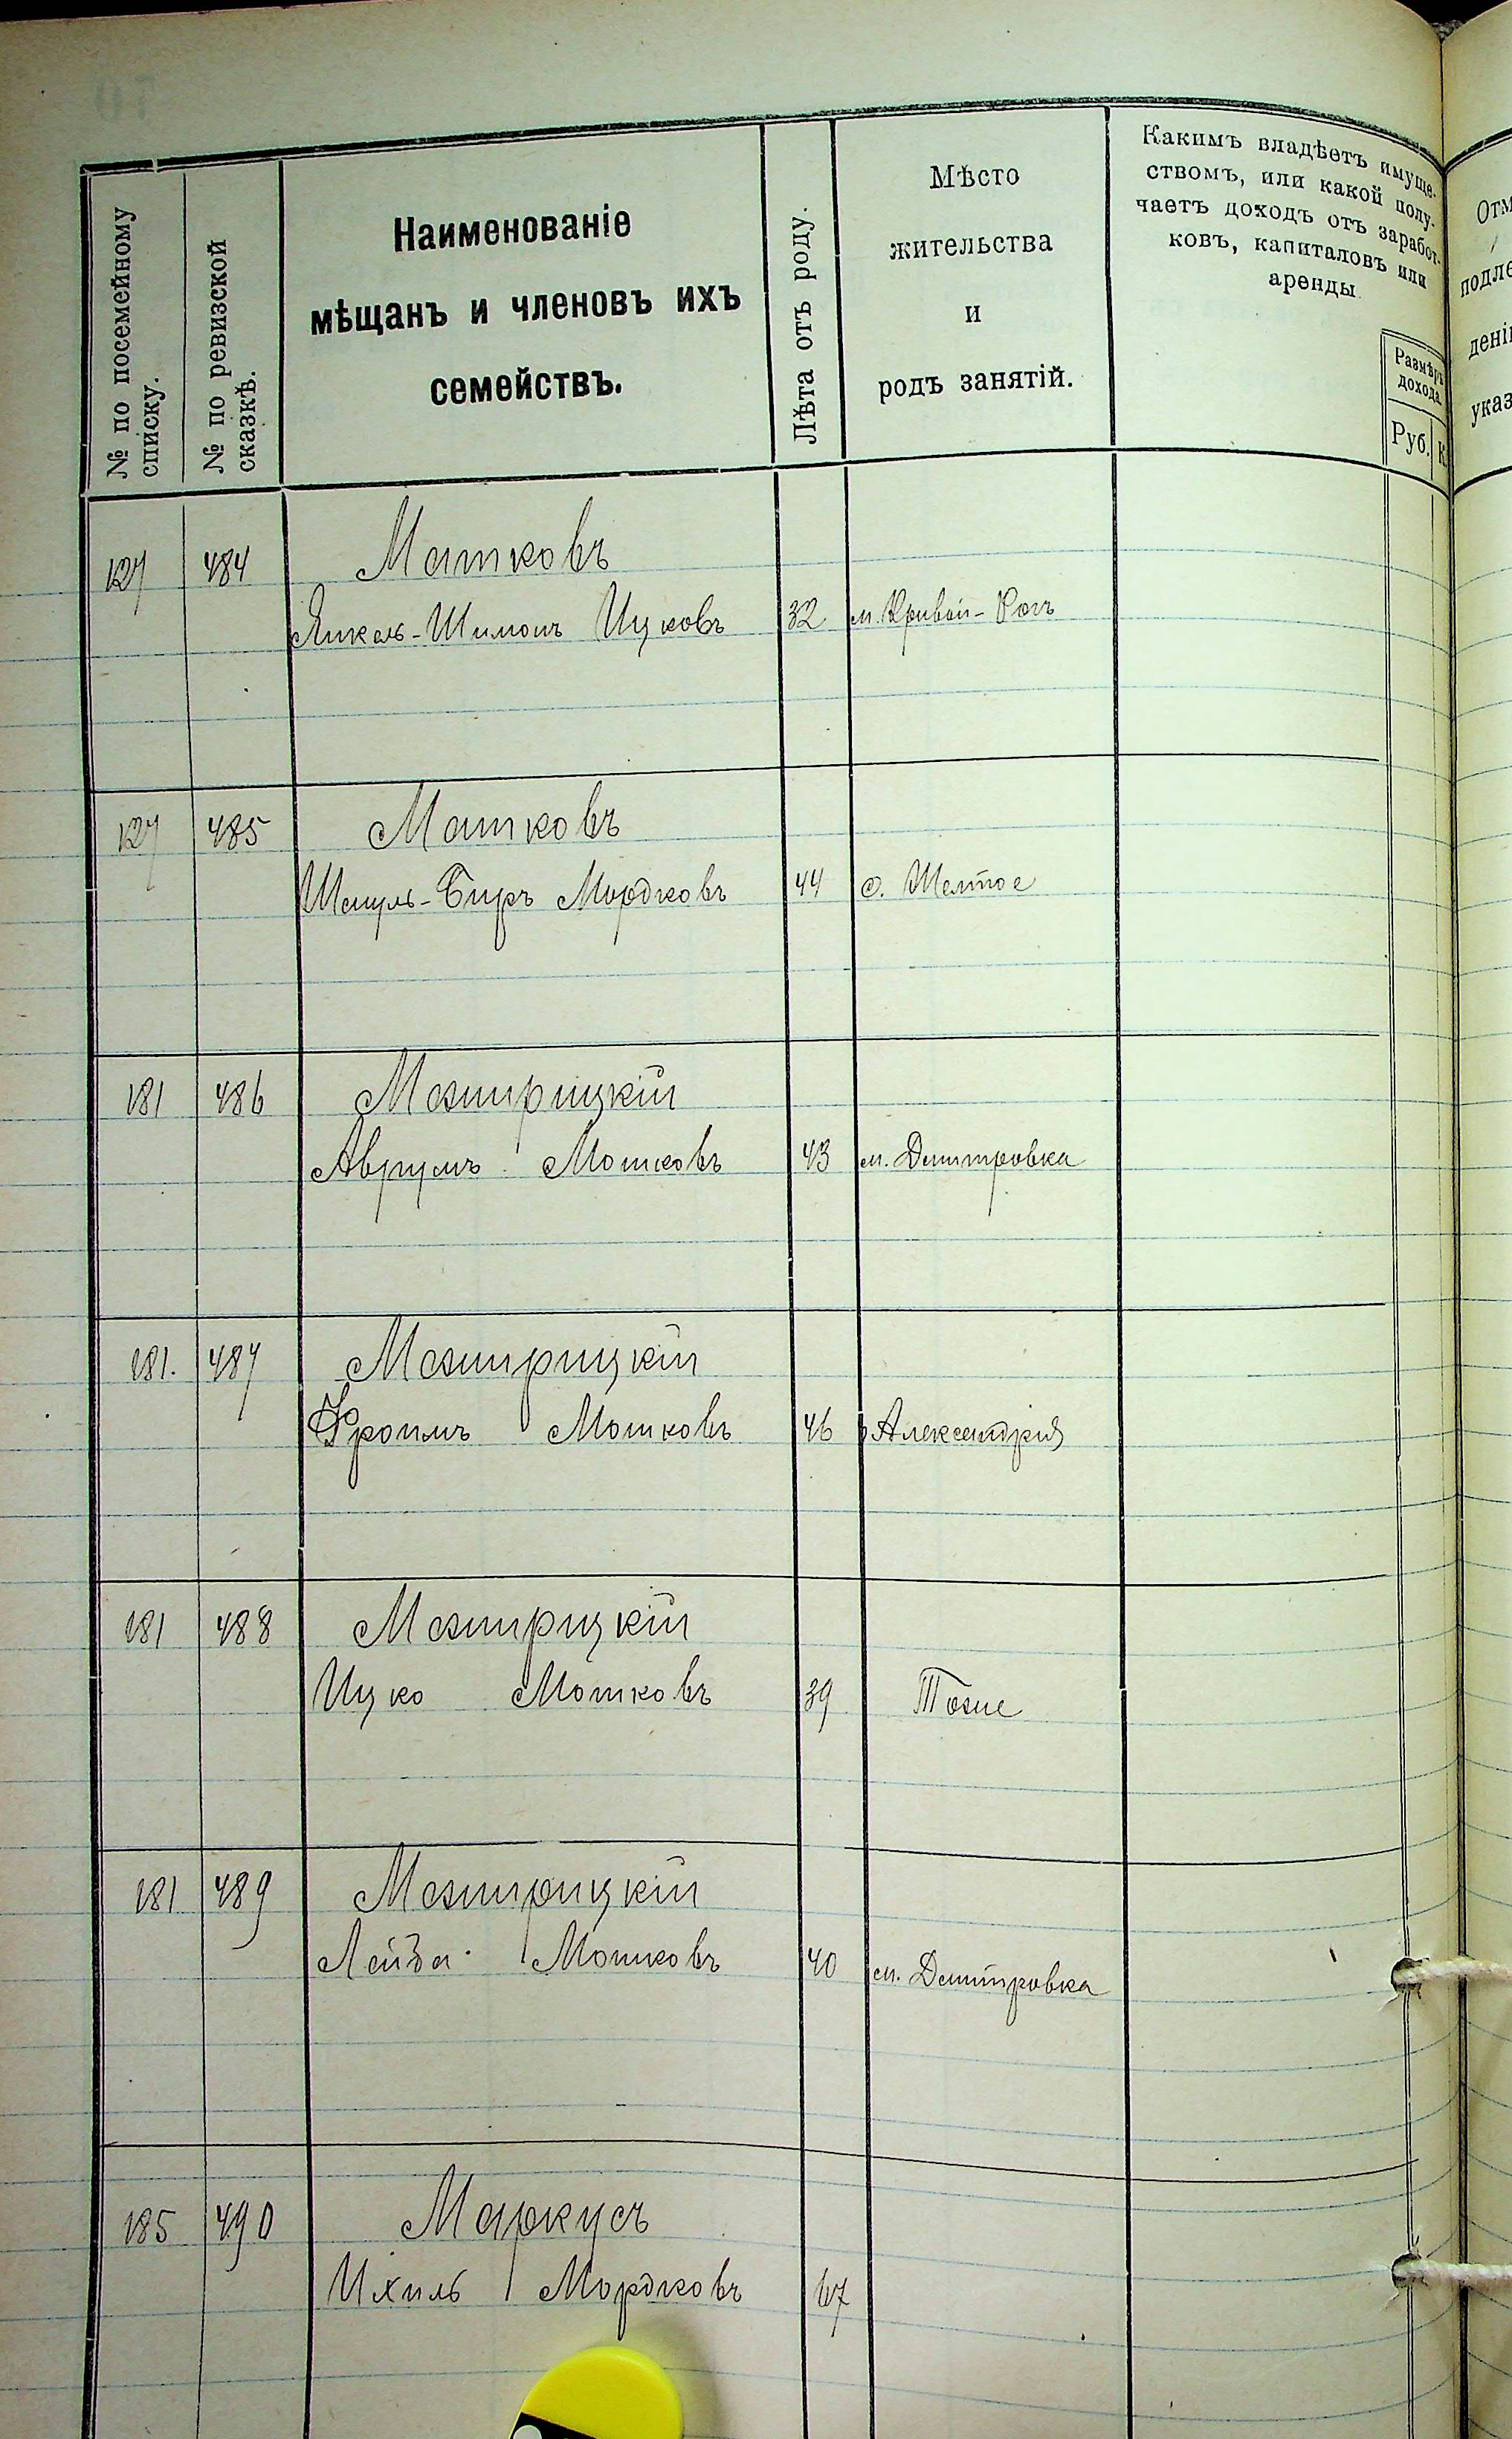 № по посемейному
списку.
№ по ревизской
сказкѣ.
Наименованіе
мѣщанъ и членовъ ихъ
семействъ.
Лѣта отъ роду.
Мѣсто
жительства
и
родъ занятій.
Какимъ владѣетъ имуще-
ствомъ, или какой полу-
чаетъ доходъ отъ заработ-
ковъ, капиталовъ или
аренды
Размѣръ
дохода.
Руб. К
127 484 Матковъ
Янкель-Шимонъ Ицковъ 32 м. Кривой-Рогъ
127 485 Матковъ
Шмуль-Беръ Мордковъ 44 с. Желтое
181 486 Мезирицкій
Аврумъ Мошковъ 43 м. Дмитровка
181. 487 Мезирицкій
Фроимъ Мошковъ 46 Александрія
181 488 Мезирицкій
Ицко Мошковъ 39 Тоже
181 489 Мезирицкій
Лейба Мошковъ 40 м. Дмитровка
185 490 Маркусъ
Ихиль Мордковъ 67